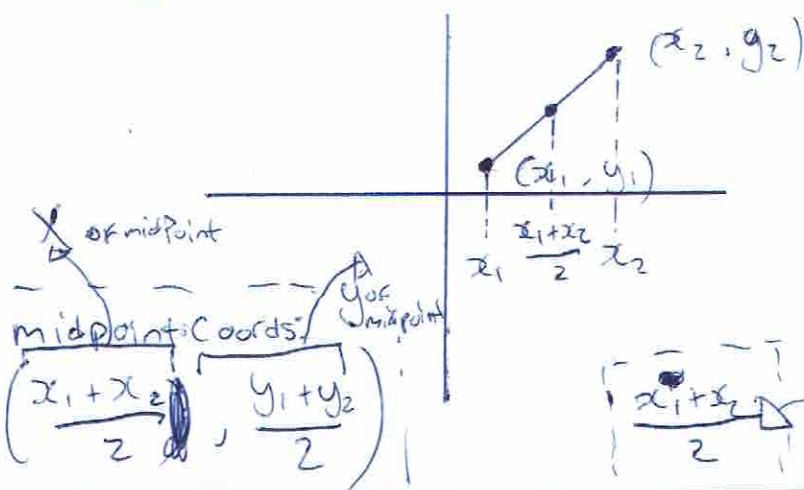 (x₂, y₂)
(x₁, y₁)
x₁ (x₁+x₂)/2 x₂
X of midpoint
y of midpoint
midpoint Coords:
((x₁+x₂)/2, (y₁+y₂)/2)
(x₁+x₂)/2